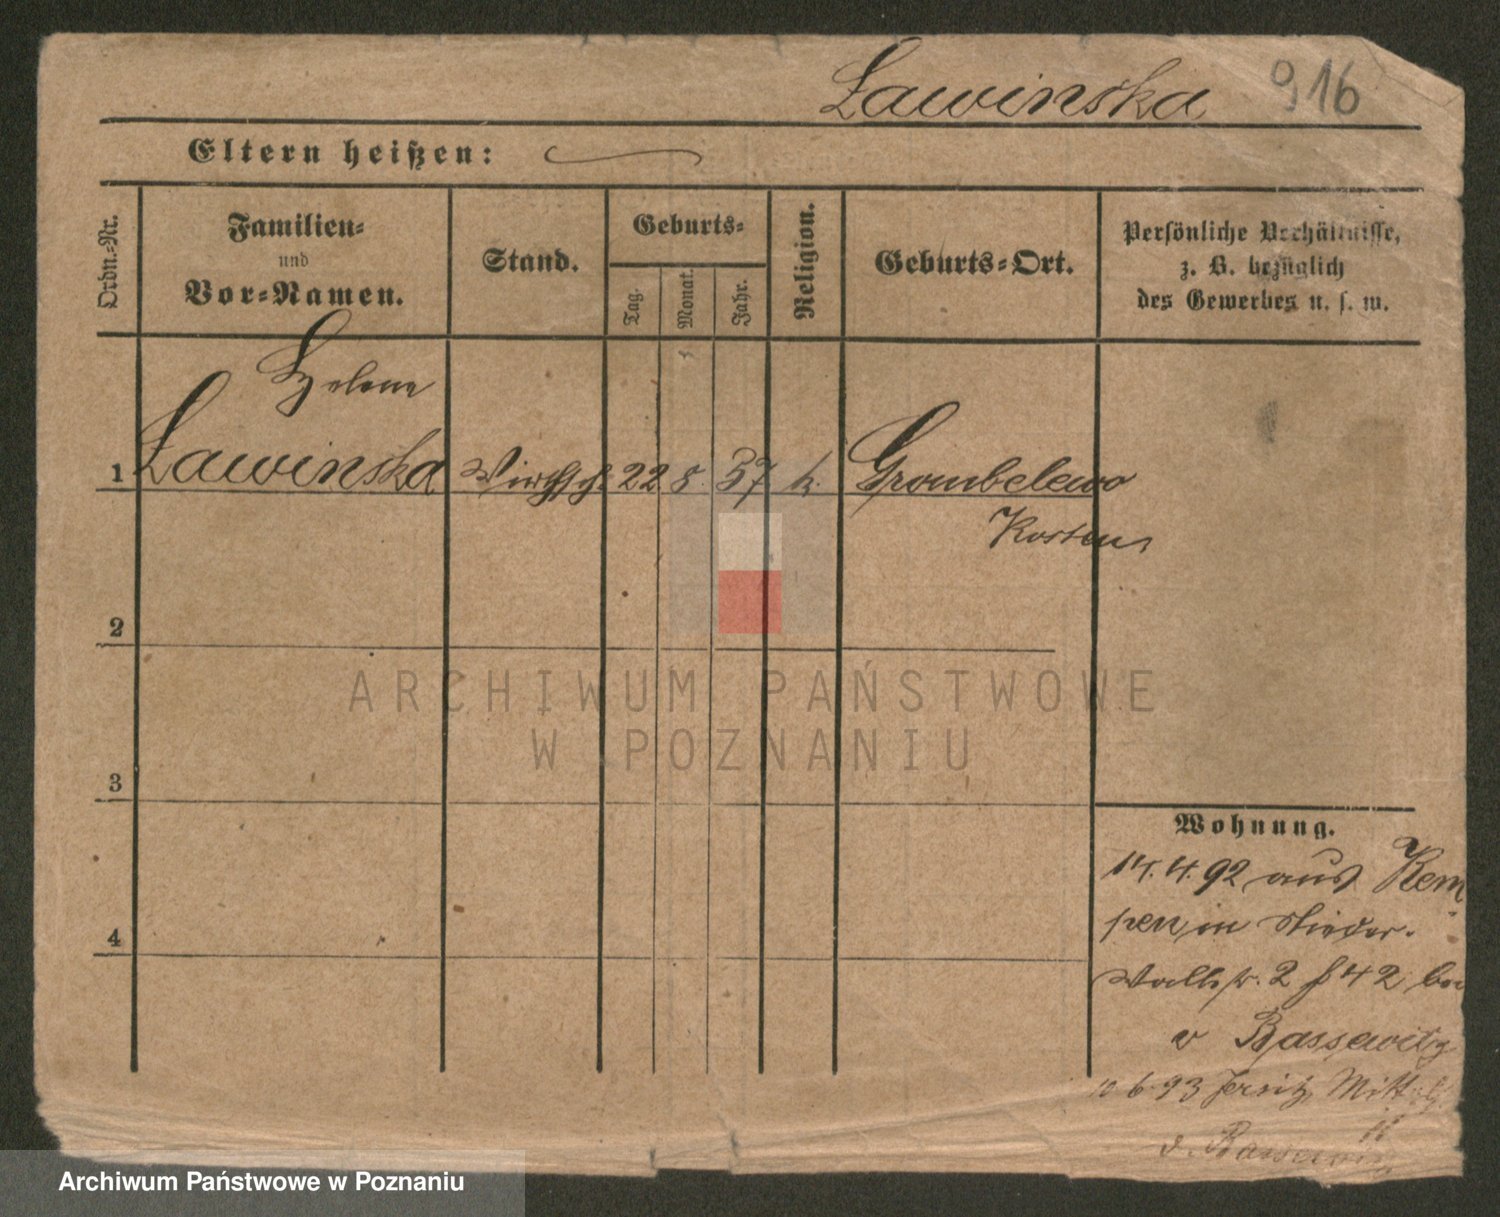 Lawinska 916
Eltern heißen:
Ordn.-Nr.
Familien-
und
Vor-Namen.
Stand.
Geburts-
Tag.
Monat.
Jahr.
Religion.
Geburts-Ort.
Persönliche Verhältnisse,
z. B. bezüglich
des Gewerbes u. s. w.
Helene
1 Lawinska Wirthsch. 22 8. 57 k. Grombelewo
Kosten
2
ARCHIWUM PAŃSTWOWE
W POZNANIU
3
Wohnung.
14.4.92 aus Kem
pen in Nieder-
Wallstr. 2 f 42 bei
v Bassewitz
10 6.93 Jersitz, Mitt
4
v. Bassewitz
Archiwum Państwowe w Poznaniu